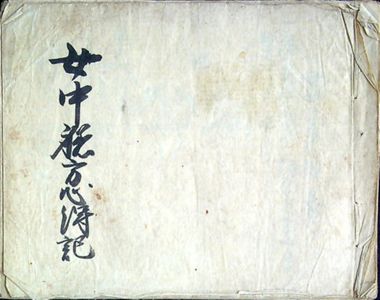 女中方心得記